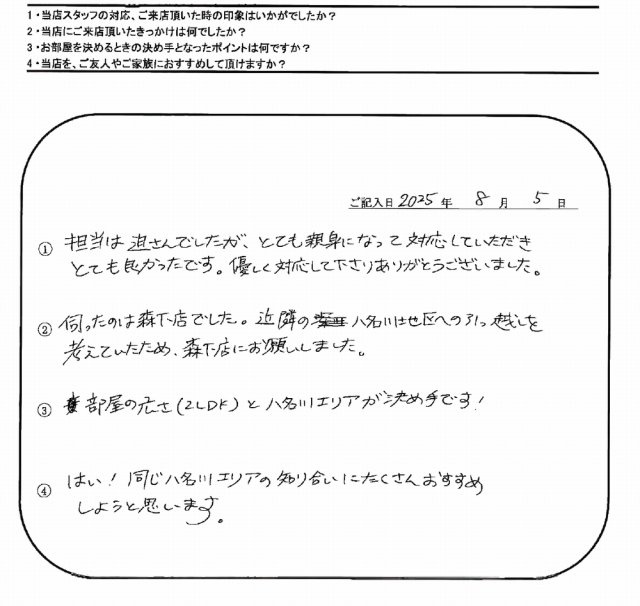 1・当店スタッフの対応、ご来店頂いた時の印象はいかがでしたか?
2・当店にご来店頂いたきっかけは何でしたか?
3・お部屋を決めるときの決め手となったポイントは何ですか?
4・当店を、ご友人やご家族におすすめして頂けますか?
ご記入日 2025 年 8 月 5 日
① 担当は迫さんでしたが、とても親身になって対応していただき
とても良かったです。優しく対応して下さりありがとうございました。
② 伺ったのは森下店でした。近隣の八名川地区への引っ越しを
考えていたため、森下店にお願いしました。
③ 部屋の広さ(2LDK)と八名川エリアが決め手です!
④ はい!同じ八名川エリアの知り合いにたくさんおすすめ
しようと思います。